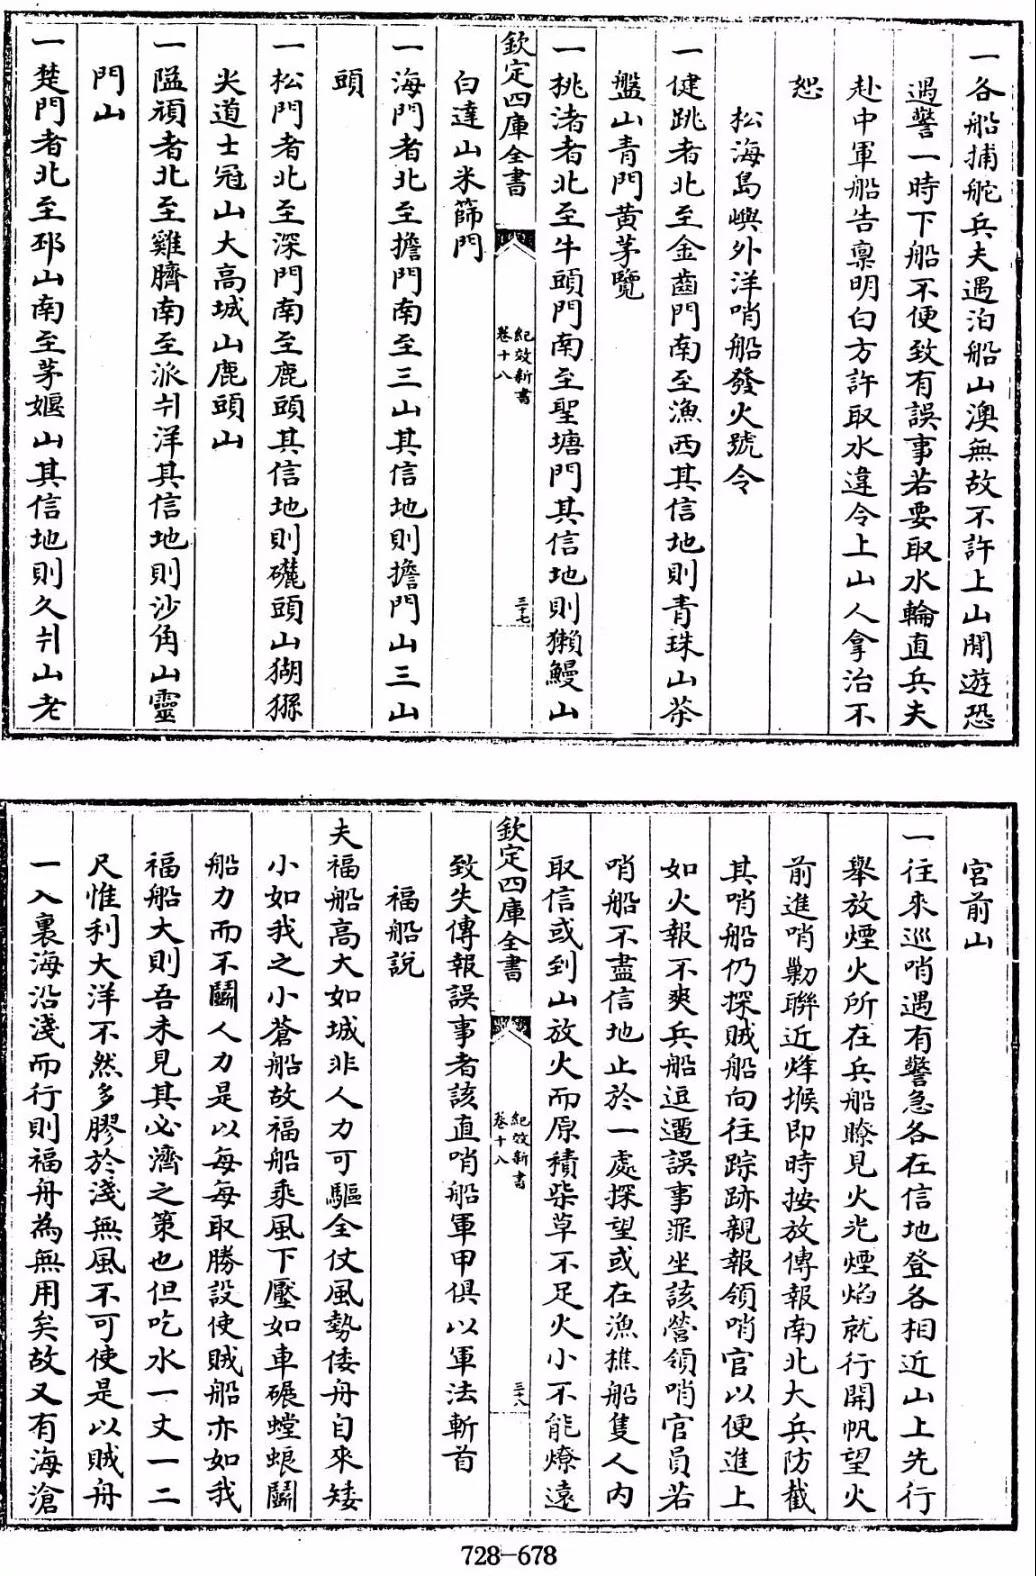 一各船捕舵兵夫遇泊船山澳無故不許上山閒遊恐
遇警一時下船不便致有誤事若要取水輪直兵夫
赴中軍船告禀明白方許取水違令上山人拿治不
恕
松海島嶼外洋哨船發火號令
一健跳者北至金齒門南至漁西其信地則青珠山茶
盤山青門黄茅覽
一挑渚者北至牛頭門南至聖塘門其信地則獺鰻山
欽定四庫全書
紀效新書
卷十八
三十七
白達山米篩門
一海門者北至擔門南至三山其信地則擔門山三山
頭
一松門者北至深門南至鹿頭其信地則礲頭山猢猻
尖道士冠山大高城山鹿頭山
一隘頑者北至雞臍南至派𠁣洋其信地則沙角山靈
門山
一楚門者北至邳山南至茅㜈山其信地則久𠁣山老
宫前山
一往來巡哨遇有警急各在信地登各相近山上先行
舉放煙火所在兵船瞭見火光煙焰就行開帆望火
前進哨勦聯近烽堠即時按放傳報南北大兵防截
其哨船仍探賊船向往踪跡親報領哨官以便進上
如火報不爽兵船逗遛誤事罪坐該營領哨官員若
哨船不盡信地止於一處探望或在漁樵船隻人内
取信或到山放火而原積柴草不足火小不能燎遠
欽定四庫全書
紀效新書
卷十八
三十八
致失傳報誤事者該直哨船軍甲俱以軍法斬首
福船説
夫福船高大如城非人力可驅全仗風勢倭舟自來矮
小如我之小蒼船故福船乘風下壓如車碾螳蜋鬭
船力而不鬭人力是以每每取勝設使賊船亦如我
福船大則吾未見其必濟之策也但吃水一丈一二
尺惟利大洋不然多膠於淺無風不可使是以賊舟
一入裏海沿淺而行則福舟為無用矣故又有海滄
728-678